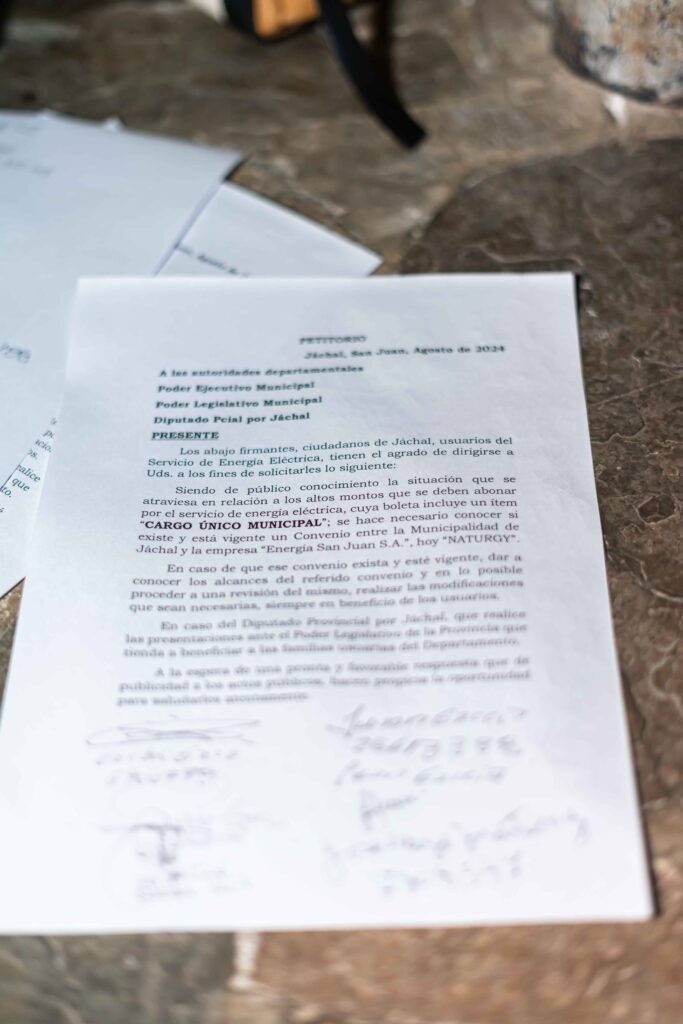 PETITORIO
Jáchal, San Juan, Agosto de 2024
A las autoridades departamentales
Poder Ejecutivo Municipal
Poder Legislativo Municipal
Diputado Pcial por Jáchal
PRESENTE
Los abajo firmantes, ciudadanos de Jáchal, usuarios del
Servicio de Energía Eléctrica, tienen el agrado de dirigirse a
Uds. a los fines de solicitarles lo siguiente:
Siendo de público conocimiento la situación que se
atraviesa en relación a los altos montos que se deben abonar
por el servicio de energía eléctrica, cuya boleta incluye un item
“CARGO ÚNICO MUNICIPAL”; se hace necesario conocer si
existe y está vigente un Convenio entre la Municipalidad de
Jáchal y la empresa “Energía San Juan S.A.”, hoy “NATURGY”.
En caso de que ese convenio exista y esté vigente, dar a
conocer los alcances del referido convenio y en lo posible
proceder a una revisión del mismo, realizar las modificaciones
que sean necesarias, siempre en beneficio de los usuarios.
En caso del Diputado Provincial por Jáchal, que realice
las presentaciones ante el Poder Legislativo de la Provincia que
tienda a beneficiar a las familias usuarias del Departamento.
A la espera de una pronta y favorable respuesta que de
publicidad a los actos públicos, hacen propicia la oportunidad
para saludarlos atentamente.